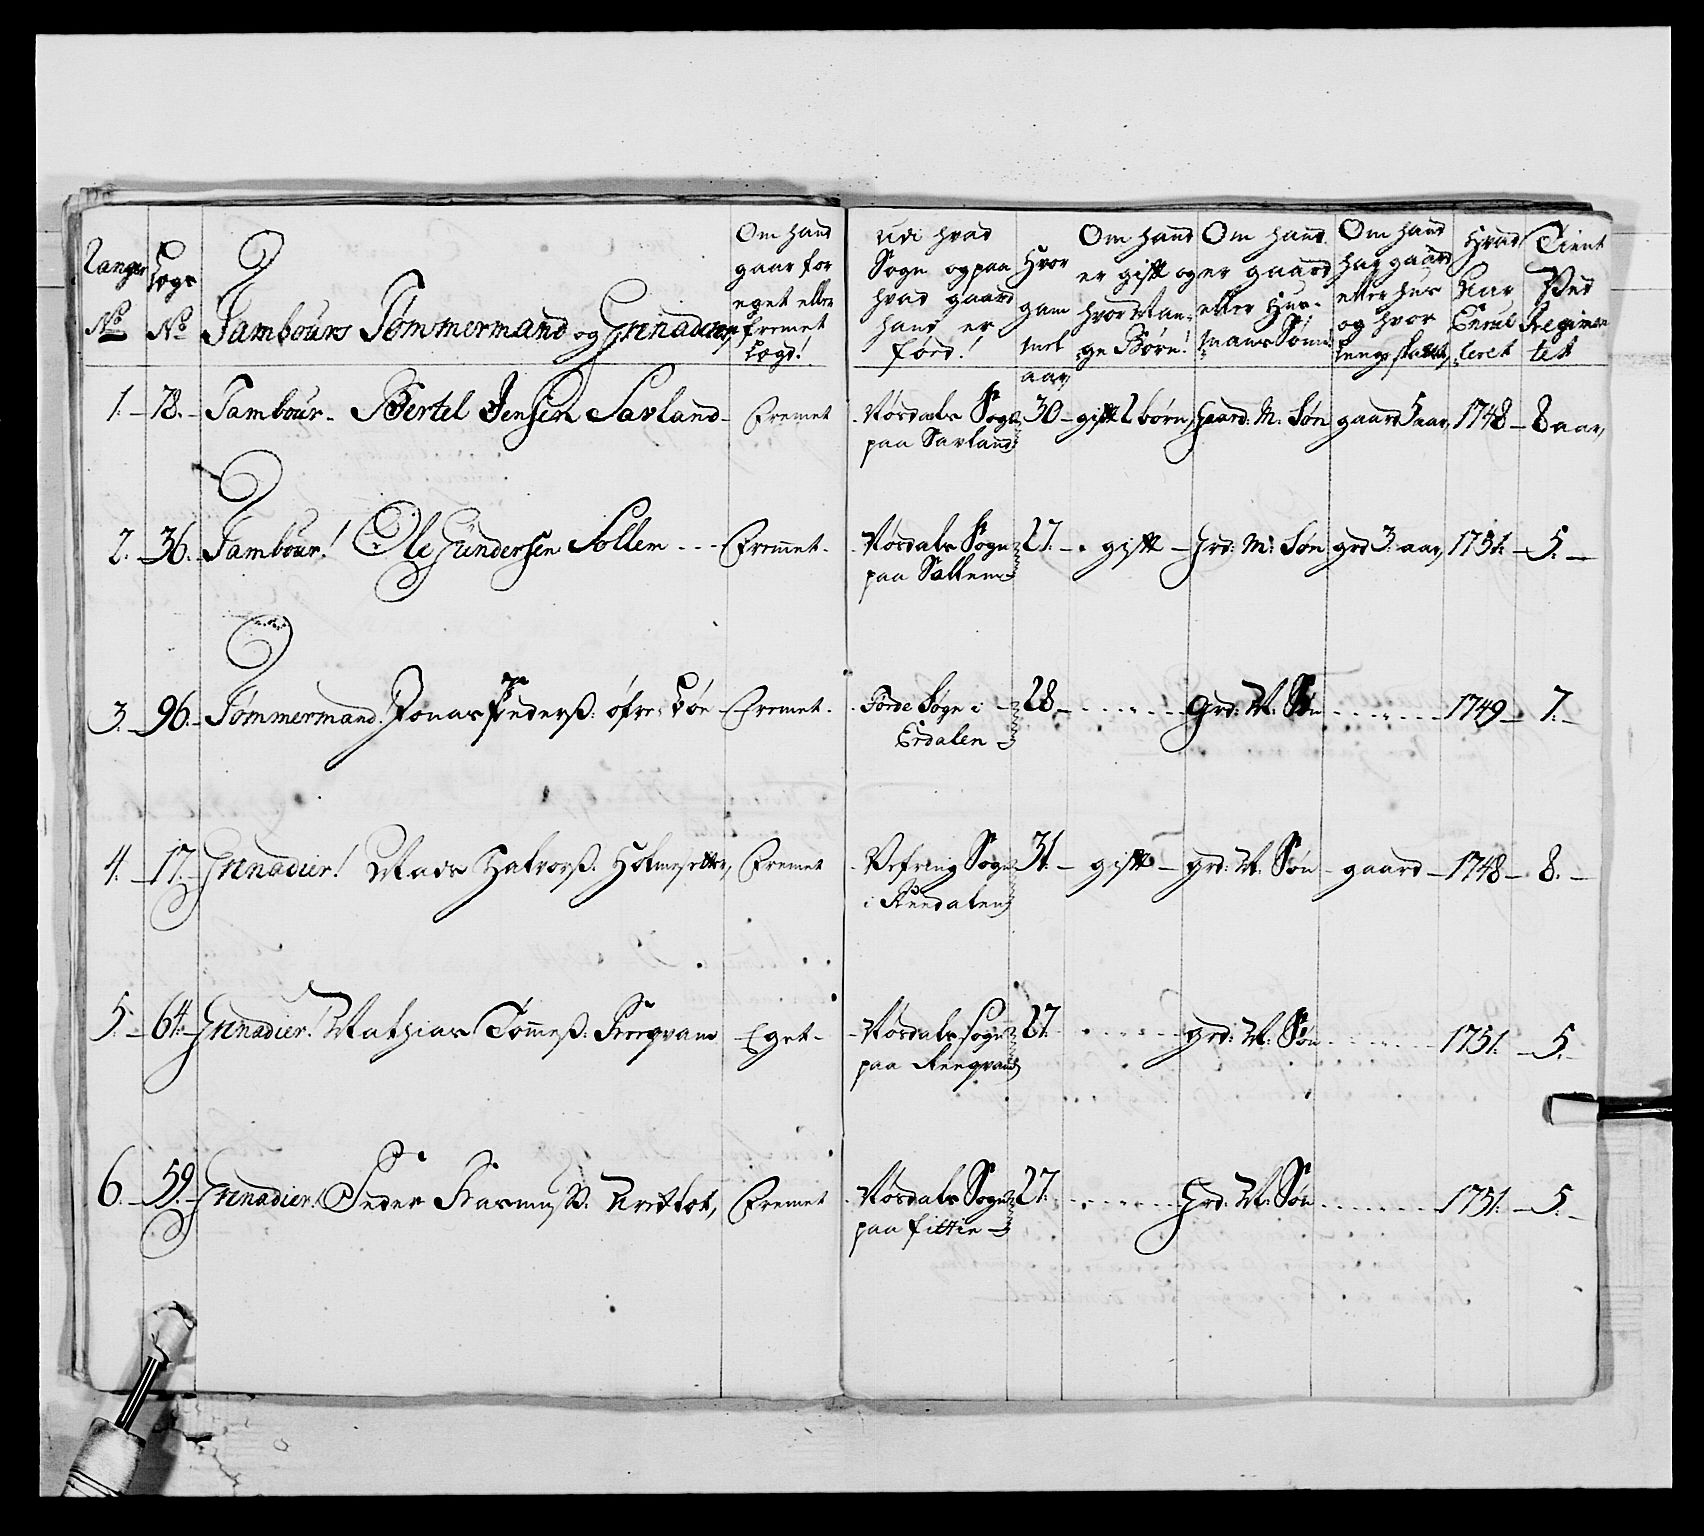 Rangs No
Lægs No
Tambours Tømmermand og Grenaderer
Om hand gaar for eget eller fremet Lægd!
udi hvad Sogn og paa hvad gaard hand er förd!
Hvor gam mel aar
Om hand er gift og hvor Man ge Börn!
Om hand er gaard eller Hus mans Søn
Om hand har gaard eller hus og hvor lenge
Hvad Aar Enrul leret
Tient Ved Regimen tet
1. 78. Tambour Bertel Jensen Savland Fremet Vosdals Sogn paa Savland 30 gift 2 börn Gaard M. Søn gaard 5 aar 1748 8 aar
2. 36. Tambour! Ole Gundersen Sollem Fremmet Vosdals Sogn paa Sollem 27. gift Grd: M: Søn grd 3 aar 1751. 5.
3. 96. Tømmermand. Jonas Pederß: öfre Fremet Förde Sogn i Erdalen 28 Grd: M: Søn 1749 7.
4. 17. Grenadier! Mads Halvorß. Holmesetter, Fremet Vefring Sogn i 31. gift grd: M. Søn gaard 1748 8.
5. 64. Grenadier! Mathias Tommeß: Eget Vosdals sogn paa 27. grd: M: Søn 1751. 5.
6. 59. Grenadier! Peder Rasmusß. Fremet Vosdals Sogn paa 27. Grd: M: Søn 1751. 5.